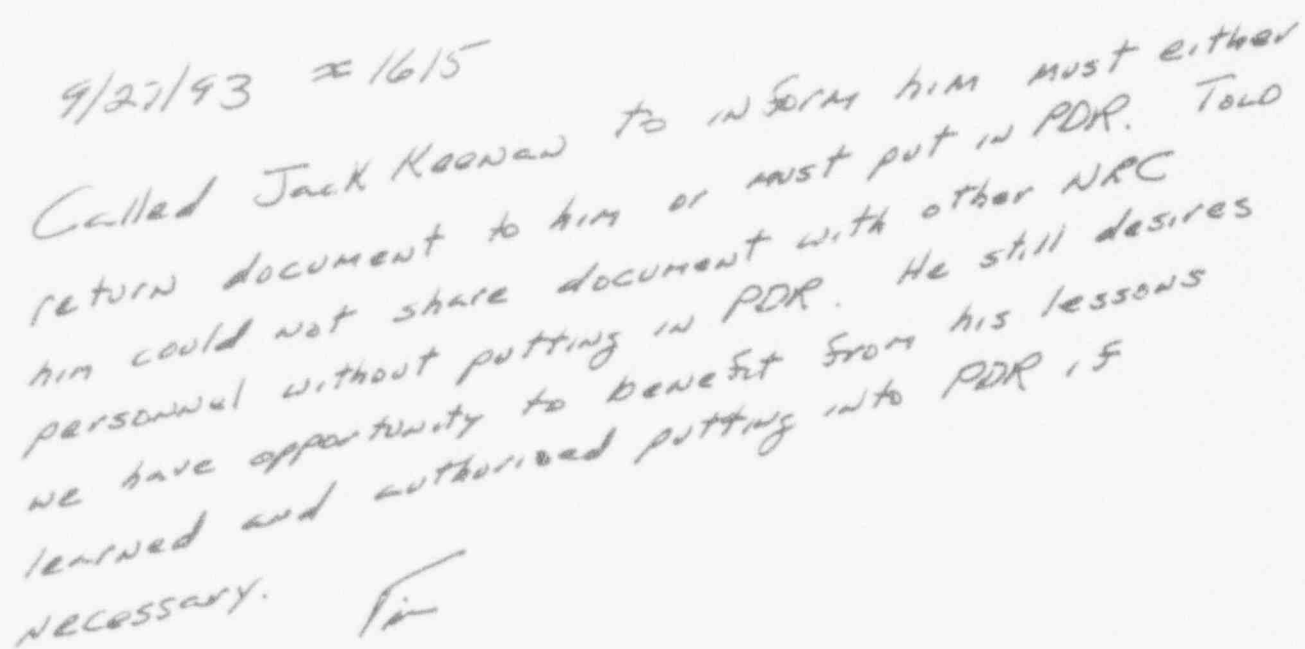 9/27/93 ≈ 1615
Called Jack Keenan to inform him must either
return document to him or must put in PDR. Told
him could not share document with other NRC
personnel without putting in PDR. He still desires
we have opportunity to benefit from his lessons
learned and authorized putting into PDR if
necessary. Tim